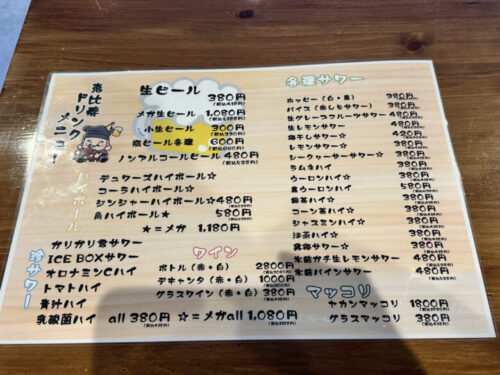 恵比寿
ドリンク
メニュー
生ビール
380円
メガ生ビール 1,080円
小生ビール 300円
瓶ビール各種 600円
ノンアルコールビール 480円
ハイボール
デュワーズハイボール☆
コーラハイボール☆
ジンジャーハイボール☆ 480円
角ハイボール★ 580円
★=メガ 1,180円
珍サワー
ガリガリ君サワー
ICE BOXサワー
オロナミンCハイ
トマトハイ
青汁ハイ
乳酸菌ハイ all 380円 ☆=メガall 1,080円
ワイン
ボトル(赤・白) 2800円
デキャンタ(赤・白) 1000円
グラスワイン(赤・白) 380円
各種サワー
ホッピー(白・黒) 380円
バイス(赤しそサワー) 380円
生グレープフルーツサワー 480円
生レモンサワー 480円
梅干しサワー☆ 420円
レモンサワー☆ 380円
シークヮーサーサワー☆ 380円
ラムネハイ 380円
ウーロンハイ☆ 380円
黒ウーロンハイ 580円
緑茶ハイ☆ 380円
コーン茶ハイ☆ 380円
ジャスミンハイ☆ 380円
抹茶ハイ☆ 380円
サワー☆ 380円
氷結ガチ生レモンサワー 480円
氷結パインサワー 480円
マッコリ
ヤカンマッコリ 1800円
グラスマッコリ 380円